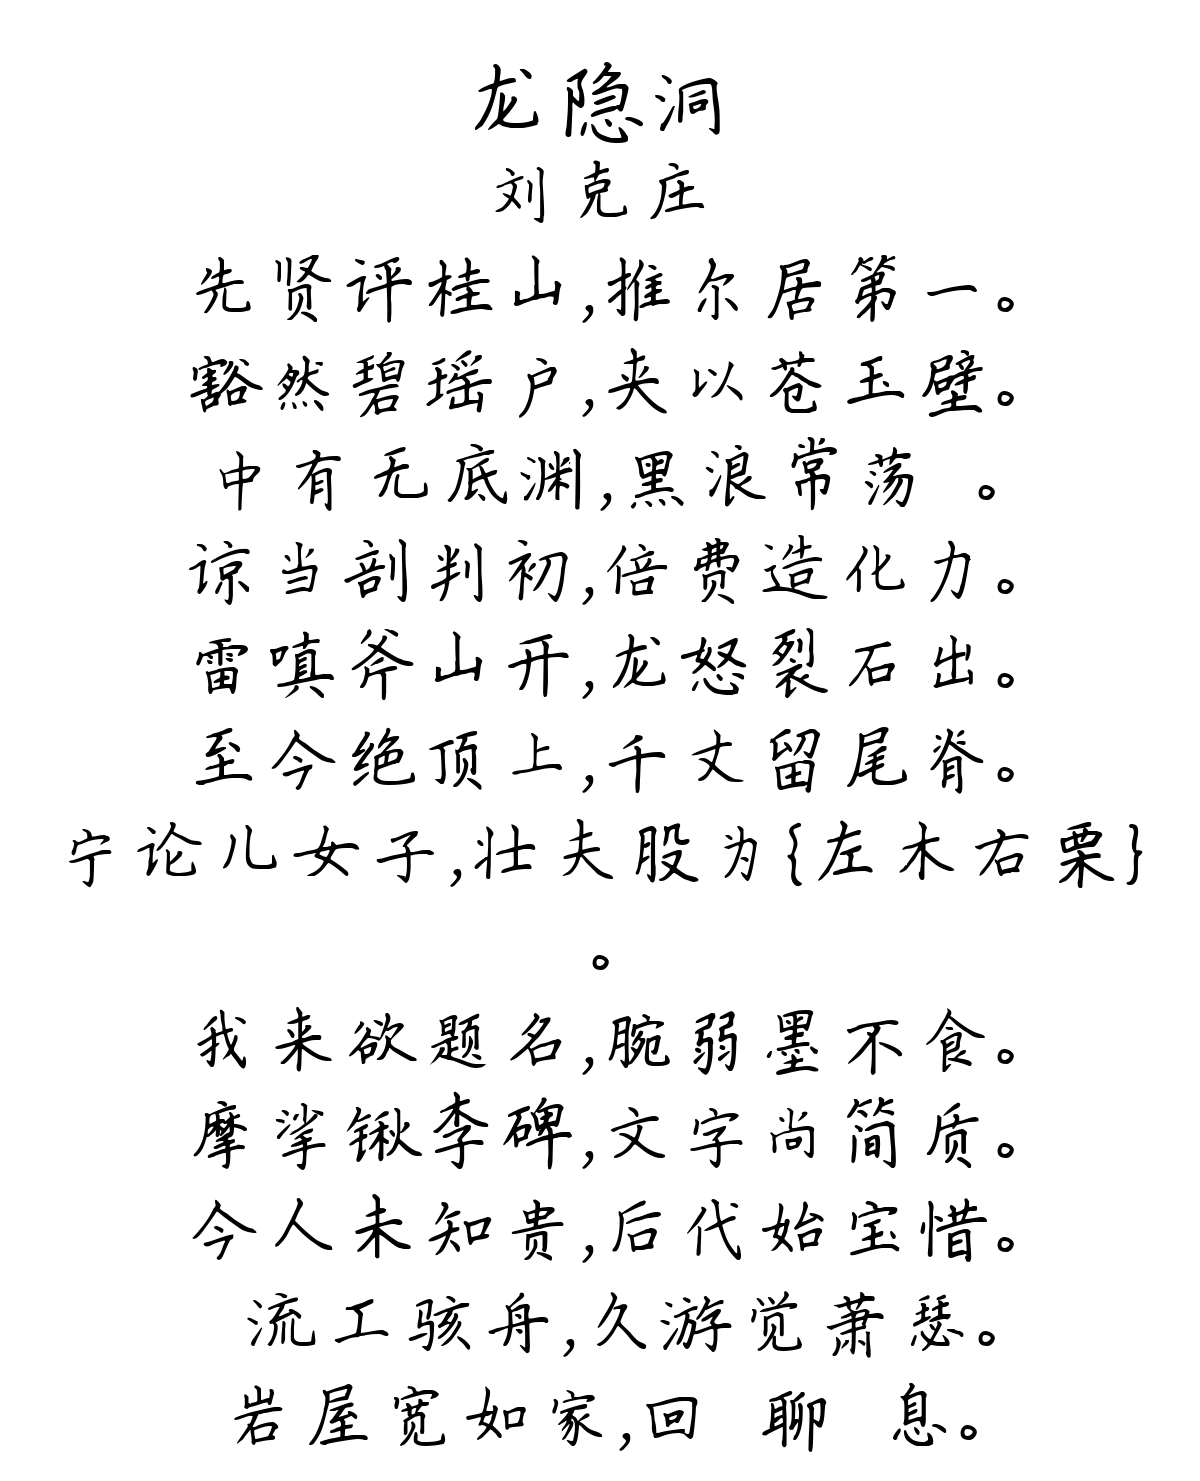 龙隐洞
刘克庄
先贤评桂山,推尔居第一。
豁然碧瑶户,夹以苍玉壁。
中有无底渊,黑浪常荡 。
谅当剖判初,倍费造化力。
雷嗔斧山开,龙怒裂石出。
至今绝顶上,千丈留尾脊。
宁论儿女子,壮夫股为{左木右栗}
。
我来欲题名,腕弱墨不食。
摩挲锹李碑,文字尚简质。
今人未知贵,后代始宝惜。
流工骇舟,久游觉萧瑟。
岩屋宽如家,回 聊 息。